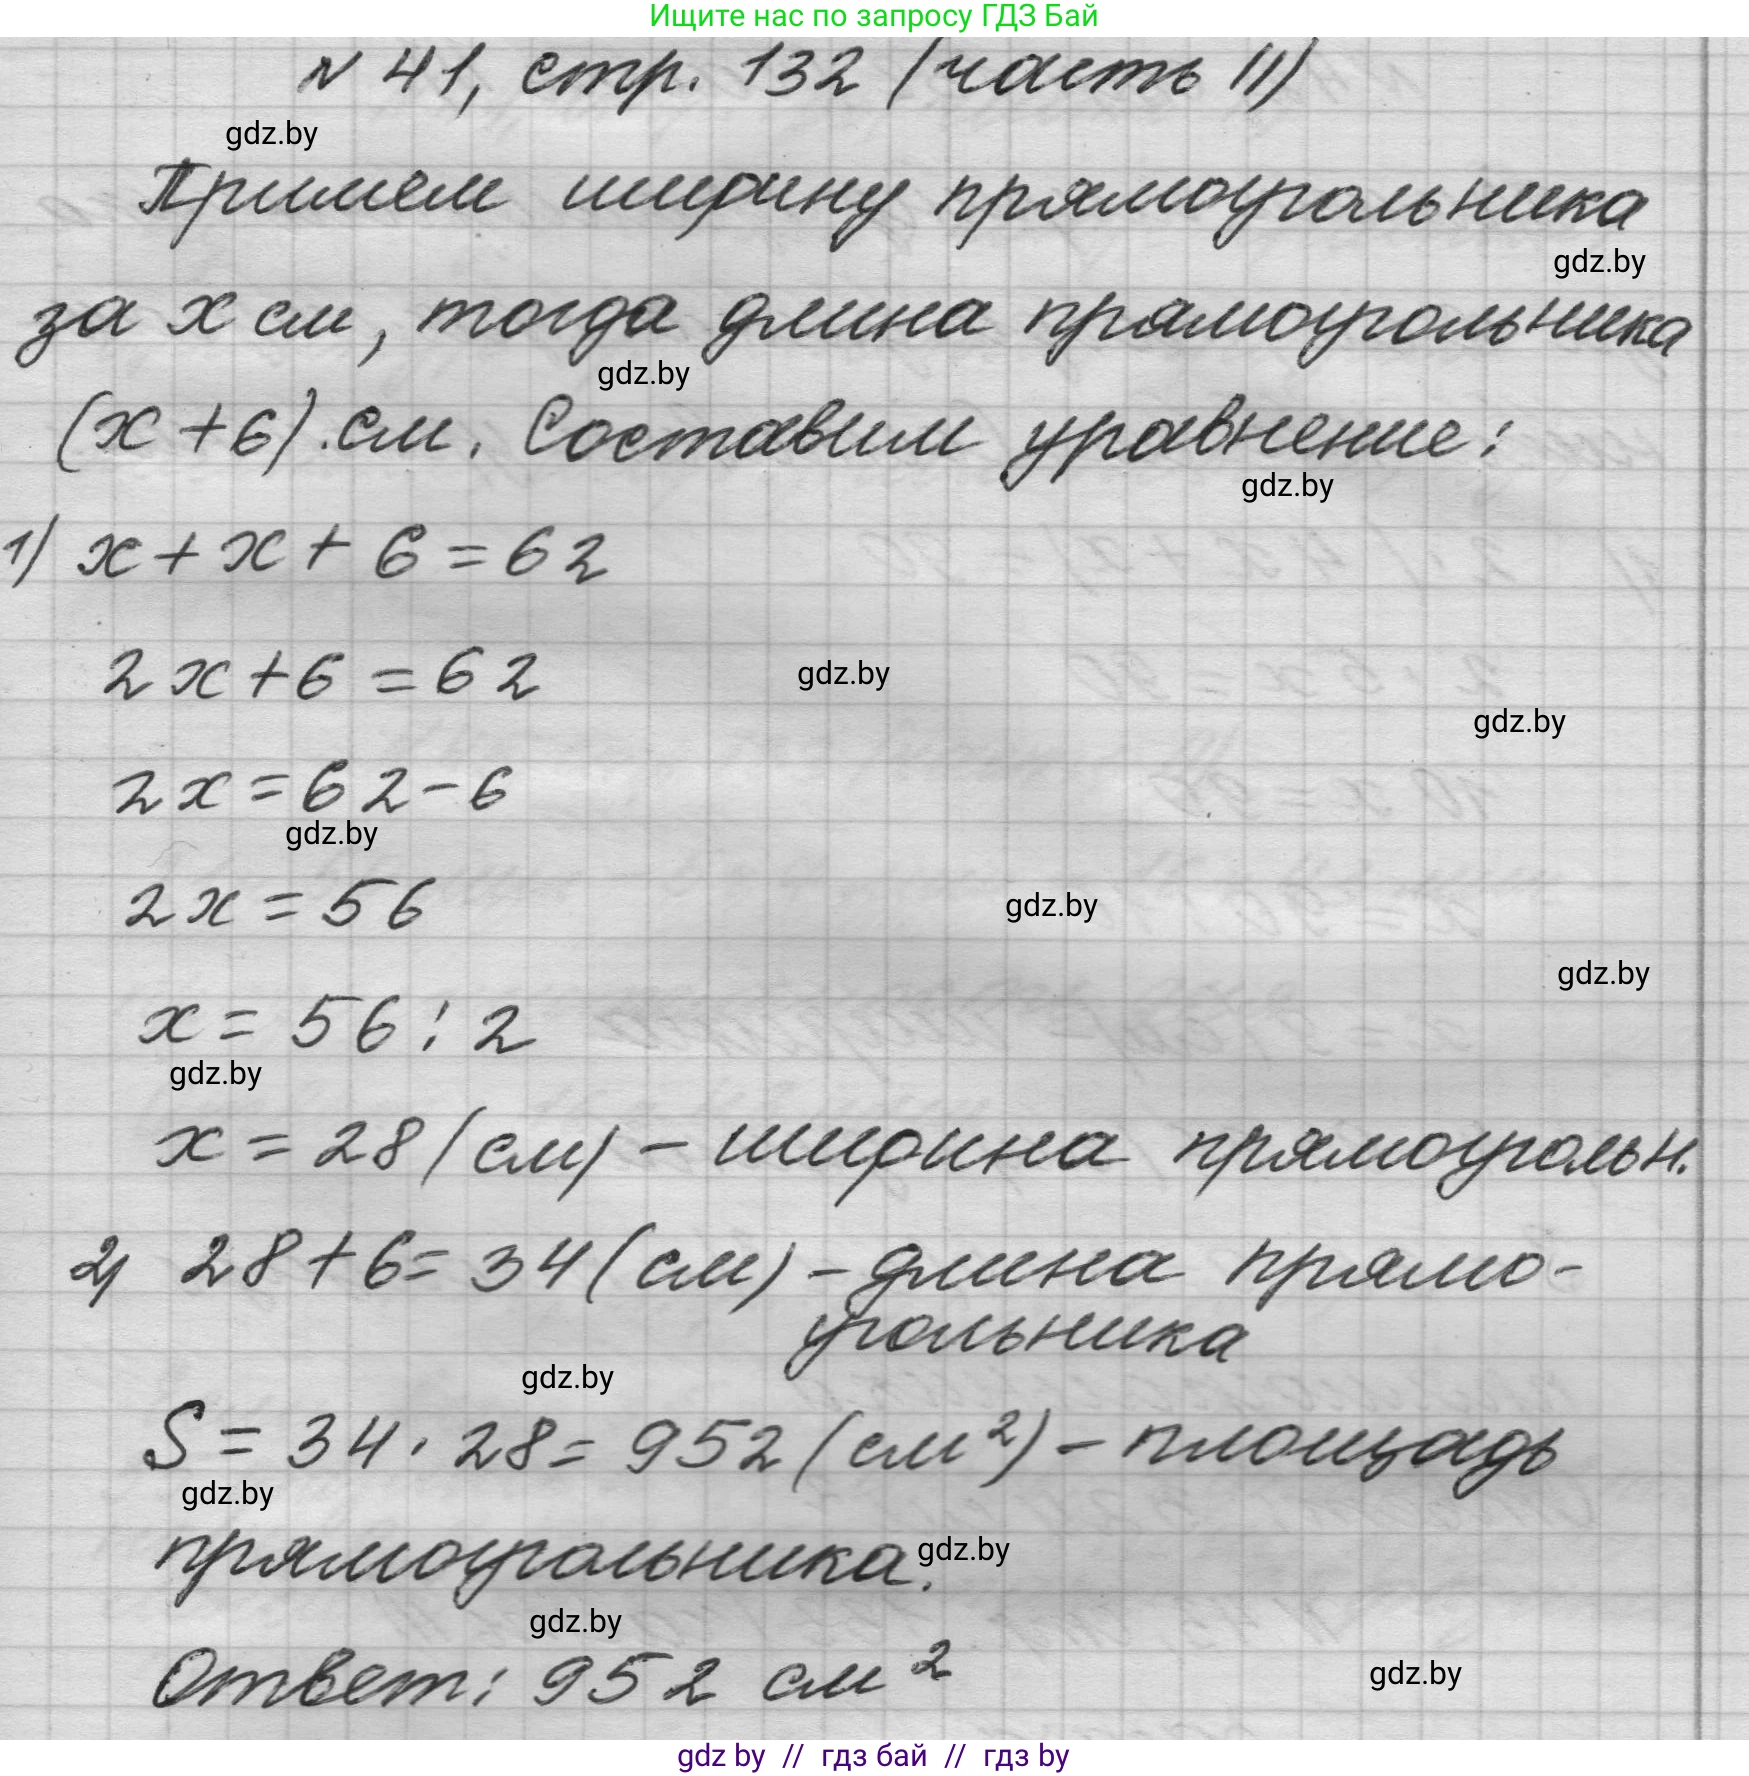 Ищите нас по запросу ГДЗ Бай
№ 41, стр. 132 (часть II)
gdz.by
Примем ширину прямоугольника
gdz.by
за x см, тогда длина прямоугольника
gdz.by
(x + 6) см. Составим уравнение:
gdz.by
1) x + x + 6 = 62
2x + 6 = 62
gdz.by
gdz.by
2x = 62 - 6
gdz.by
2x = 56
gdz.by
gdz.by
x = 56 : 2
gdz.by
x = 28 (см) - ширина прямоугольн.
2) 28 + 6 = 34 (см) - длина прямо-
угольника
gdz.by
S = 34 · 28 = 952 (см²) - площадь
gdz.by
прямоугольника.
gdz.by
gdz.by
Ответ: 952 см²
gdz.by
gdz by // гдз бай // гдз by